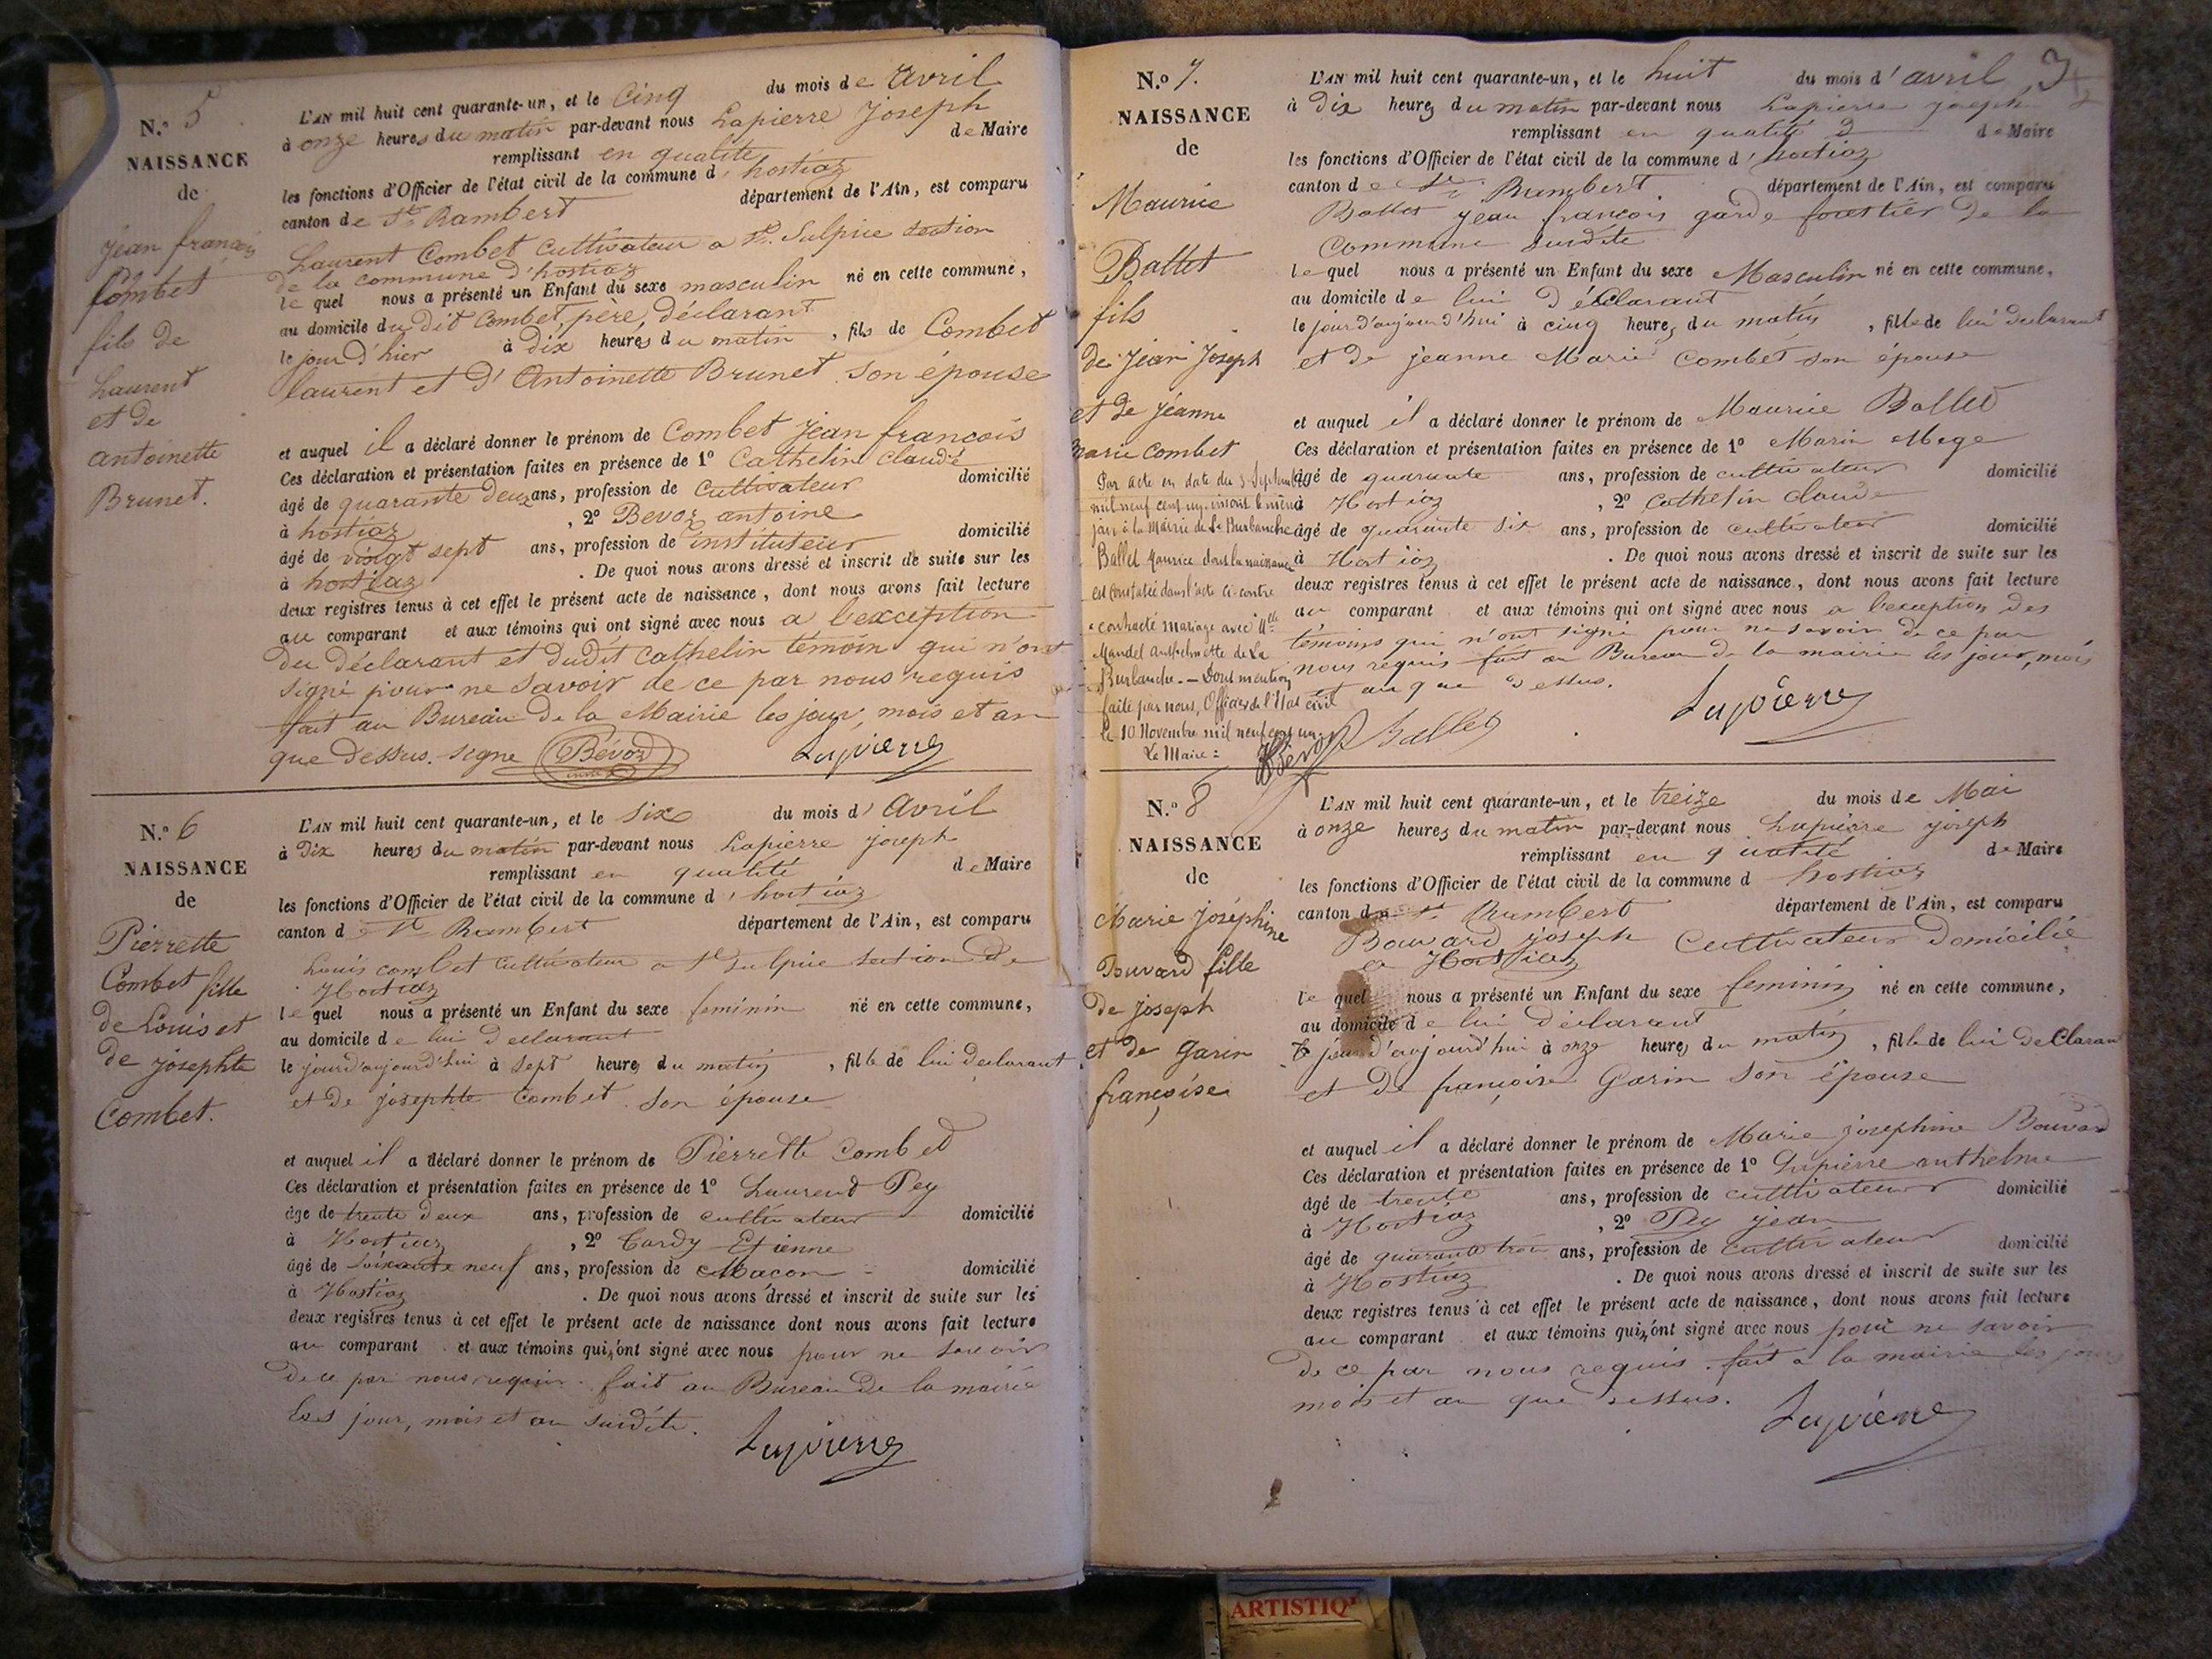 N.º 5
NAISSANCE
de
jean françois
Combet
fils de
Laurent
et de
antoinette
Brunet.
L'AN mil huit cent quarante-un, et le Cinq du mois de avril
à onze heures du matin par-devant nous Lapierre Joseph
remplissant en qualité de Maire
les fonctions d'Officier de l'état civil de la commune d'hostiaz
canton de St Rambert département de l'Ain, est comparu
Laurent Combet Cultivateur a St. Sulpice section
de la commune d'hostiaz
le quel nous a présenté un Enfant du sexe masculin né en cette commune,
au domicile du dit Combet père, déclarant
le jour d'hier à dix heures du matin, fils de Combet
laurent et d'Antoinette Brunet son épouse
et auquel il a déclaré donner le prénom de Combet jean françois
Ces déclaration et présentation faites en présence de 1º Cathelin claude
âgé de quarante deux ans, profession de Cultivateur domicilié
à hostiaz, 2º Bevoz antoine
âgé de vingt sept ans, profession de instituteur domicilié
à hostiaz. De quoi nous avons dressé et inscrit de suite sur les
deux registres tenus à cet effet le présent acte de naissance, dont nous avons fait lecture
au comparant et aux témoins qui ont signé avec nous a l'exception
du déclarant et dudit Cathelin témoin qui n'ont
signé pour ne savoir de ce par nous requis
fait au Bureau de la Mairie les jour, mois et an
que dessus. signe Bévoz Lapierre
N.º 6
NAISSANCE
de
Pierrette
Combet fille
de Louis et
de josephte
Combet.
L'AN mil huit cent quarante-un, et le six du mois d'avril
à Dix heures du matin par-devant nous Lapierre joseph
remplissant en qualité de Maire
les fonctions d'Officier de l'état civil de la commune d'hostiaz
canton de St Rambert département de l'Ain, est comparu
Louis combet cultivateur a St Sulpice section de
Hostiaz
le quel nous a présenté un Enfant du sexe feminin né en cette commune,
au domicile de lui declarant
le jour d'aujourd'hui à sept heures du matin, fille de lui declarant
et de josephte Combet son épouse
et auquel il a déclaré donner le prénom de Pierrette Combet
Ces déclaration et présentation faites en présence de 1º Laurend Pey
âge de trente deux ans, profession de cultivateur domicilié
à Hostiaz, 2º Cardy Etienne
âgé de soixante neuf ans, profession de Macon domicilié
à Hostiaz. De quoi nous avons dressé et inscrit de suite sur les
deux registres tenus à cet effet le présent acte de naissance dont nous avons fait lecture
au comparant et aux témoins qui n'ont signé avec nous pour ne savoir
de ce par nous requis. fait au Bureau de la mairie
Les jour, mois et an susdits.
Lapierre
N.º 7.
NAISSANCE
de
Maurice
Ballet
fils
de Jean Joseph
et de jéanne
marie Combet
Par acte en date du 3 Septembre
mil neuf cent un, inscrit le même
jour à la Mairie de La Burbanche
Ballet Maurice dont la naissance
est constatée dans l'acte ci-contre
a contracté mariage avec Mlle
Mandel Anthelmette de La
Burbanche. — Dont mention
faite par nous, Officier de l'Etat civil
le 10 Novembre mil neuf cent un.
Le Maire:
3
L'AN mil huit cent quarante-un, et le huit du mois d'avril
à Dix heures du matin par-devant nous Lapierre joseph
remplissant en qualité de Maire
les fonctions d'Officier de l'état civil de la commune d'hostiaz
canton de St Rambert département de l'Ain, est comparu
Ballet jean françois garde forestier de la
Commune susdite
le quel nous a présenté un Enfant du sexe Masculin né en cette commune,
au domicile de lui déclarant
le jour d'aujourd'hui à cinq heures du matin, fils de lui declarant
et de jeanne Marie Combet son épouse
et auquel il a déclaré donner le prénom de Maurice Ballet
Ces déclaration et présentation faites en présence de 1º Marin Mege
âgé de quarante ans, profession de cultivateur domicilié
à Hostiaz, 2º Cathelin claude
âgé de quarante six ans, profession de cultivateur domicilié
à Hostiaz. De quoi nous avons dressé et inscrit de suite sur les
deux registres tenus à cet effet le présent acte de naissance, dont nous avons fait lecture
au comparant et aux témoins qui ont signé avec nous a l'exception des
témoins qui n'ont signé pour ne savoir de ce par
nous requis fait au Bureau de la mairie les jour, mois
et an que dessus.
Ballet Lapierre
N.º 8
NAISSANCE
de
Marie joséphine
Bouvard fille
de joseph
et de Garin
françoise
L'AN mil huit cent quarante-un, et le treize du mois de Mai
à onze heures du matin par-devant nous Lapierre joseph
remplissant en qualité de Maire
les fonctions d'Officier de l'état civil de la commune d hostiaz
canton de St Rambert département de l'Ain, est comparu
Bouvard joseph Cultivateur Domicilié
a Hostiaz
le quel nous a présenté un Enfant du sexe feminin né en cette commune,
au domicile de lui déclarant
le jour d'aujourd'hui à onze heures du matin, fille de lui declarant
et de françoise Garin son épouse
et auquel il a déclaré donner le prénom de Marie josephine Bouvard
Ces déclaration et présentation faites en présence de 1º Lapierre anthelme
âgé de trente ans, profession de cultivateur domicilié
à Hostiaz, 2º Pey jean
âgé de quarante trois ans, profession de cultivateur domicilié
à Hostiaz. De quoi nous avons dressé et inscrit de suite sur les
deux registres tenus à cet effet le présent acte de naissance, dont nous avons fait lecture
au comparant et aux témoins qui n'ont signé avec nous pour ne savoir
de ce par nous requis. fait a la mairie les jour
mois et an que dessus.
Lapierre
ARTISTIQ